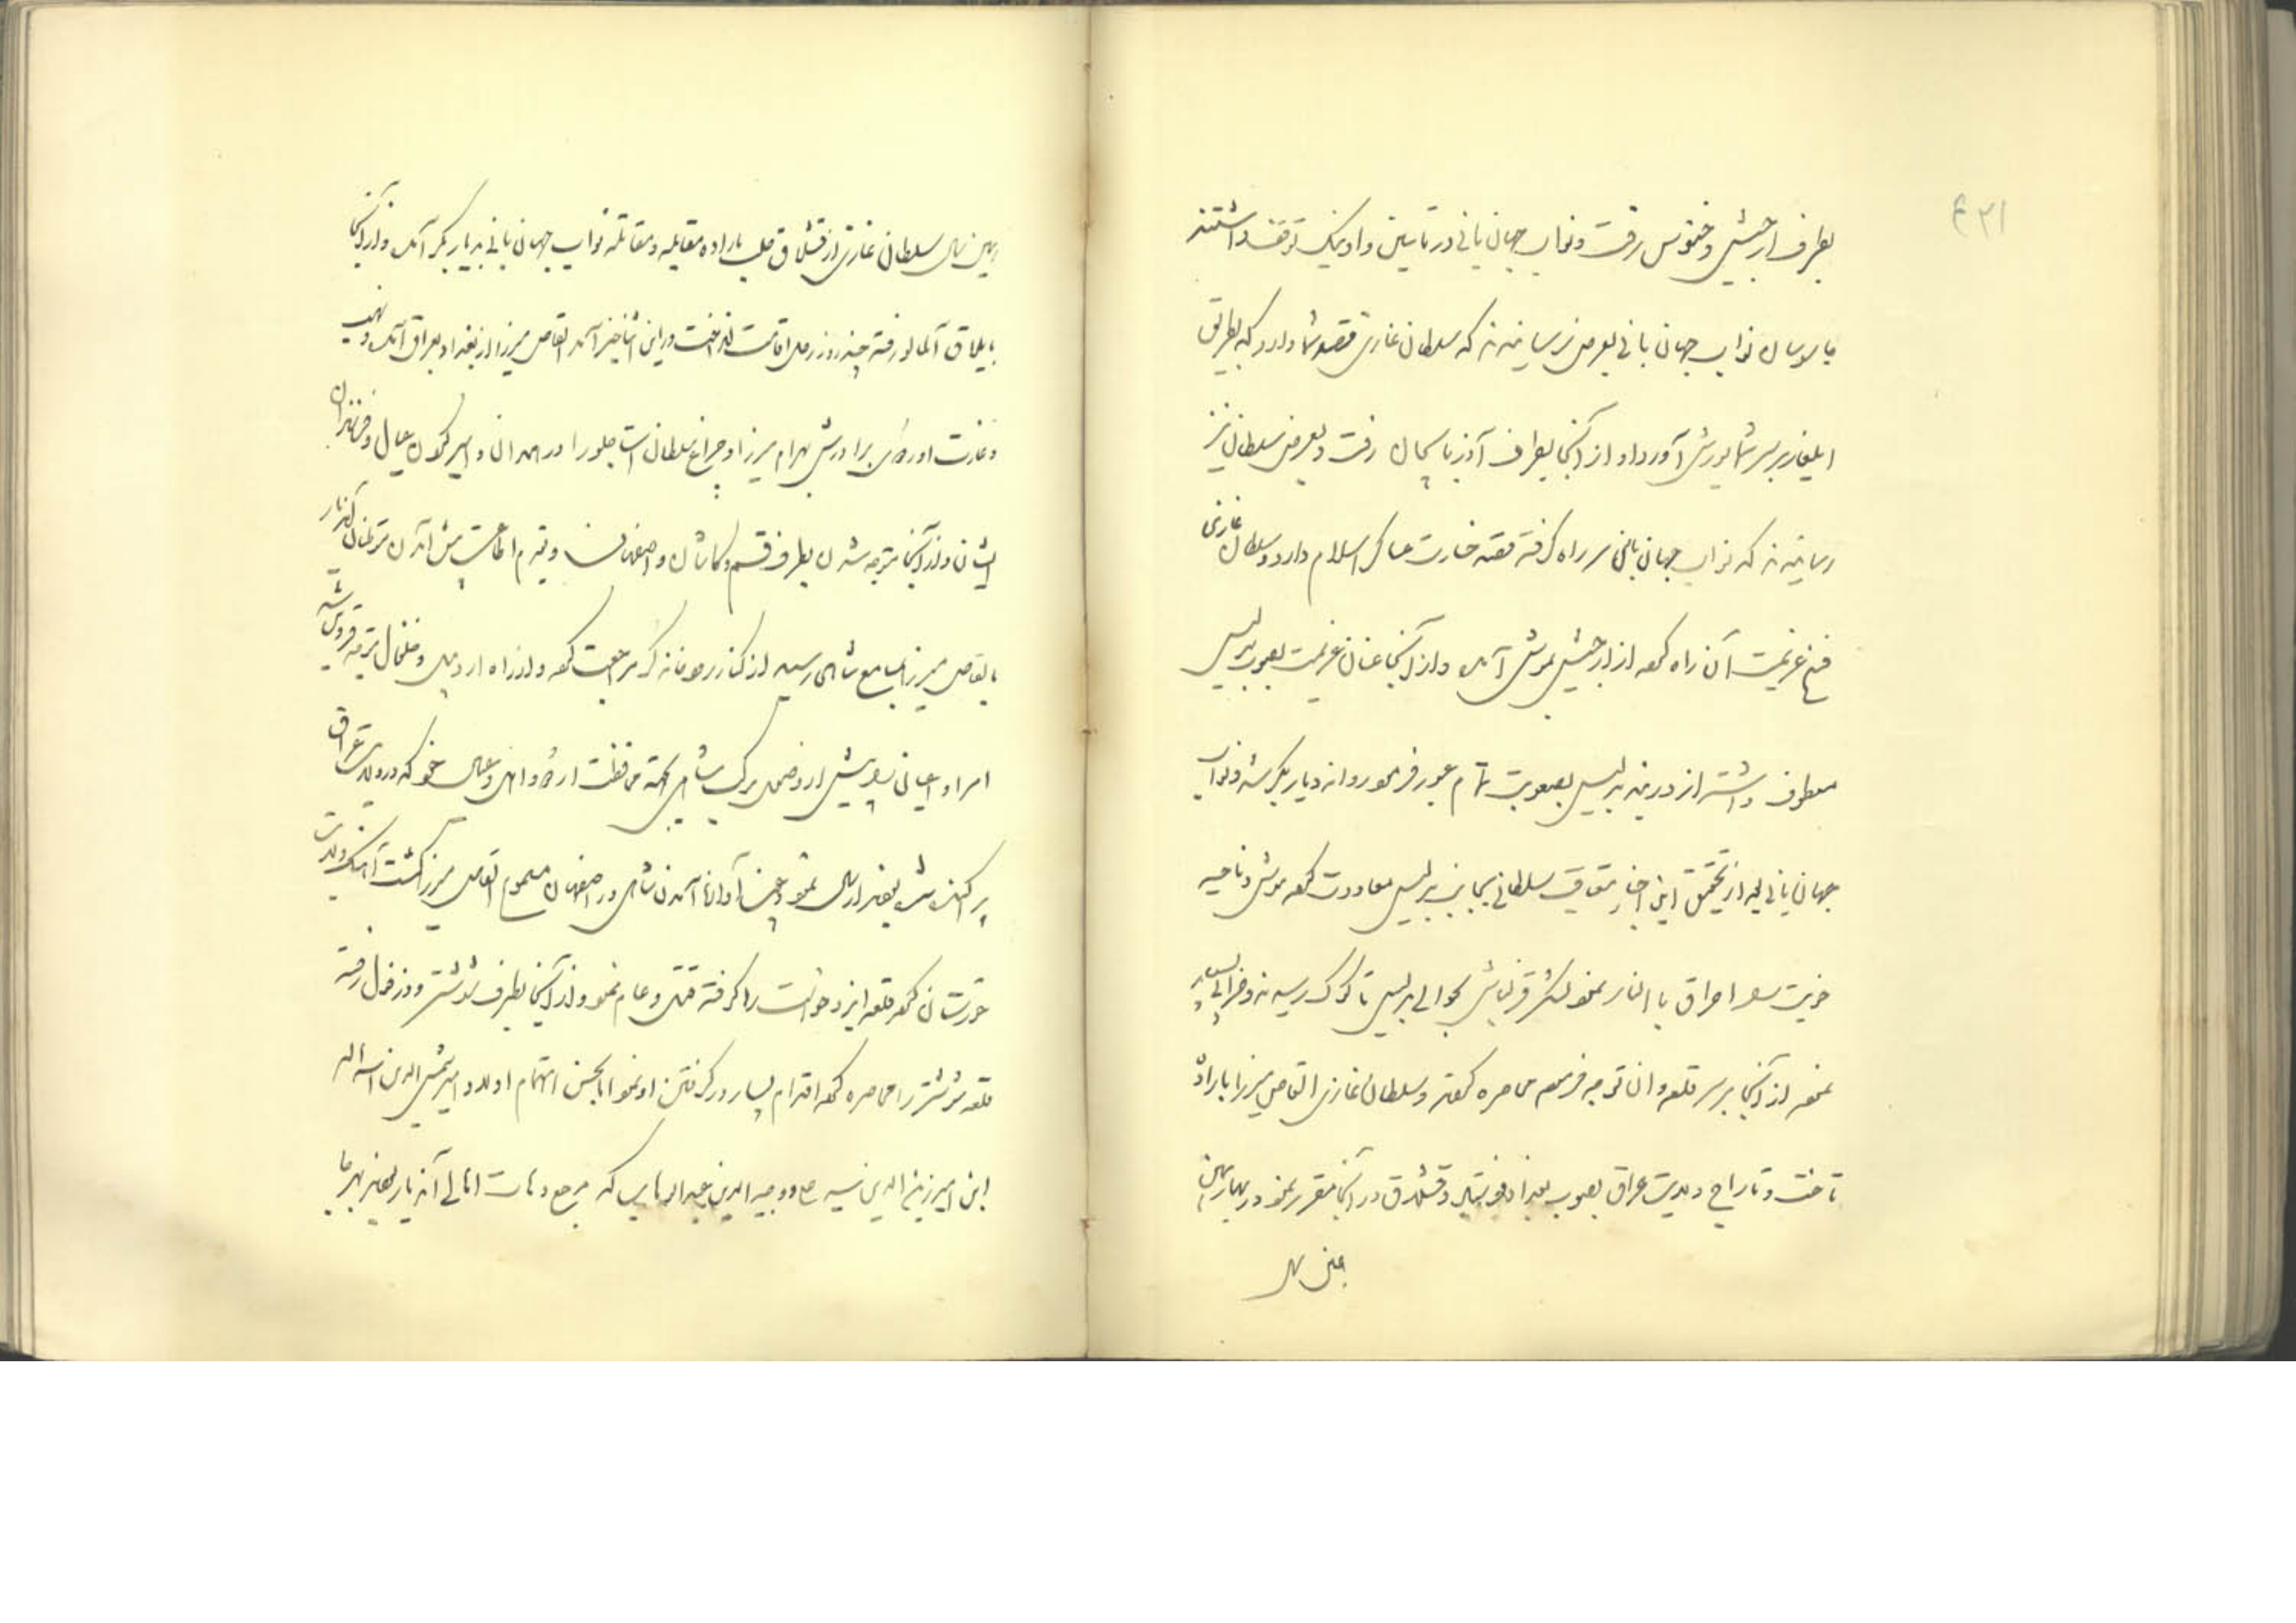 ۴۳۱
بطرف ارجیش و خنوس رفت و نواب جهان بانی در تا بین و اونیک توقف داشتند
جاسوسان نواب جهان بانی بعرض رسانیدند که سلطان غازی قصد شما دارد که بطریق
ایلغار بر سر شما یورش آورد و او از آنجا بطرف آذربایجان رفت و بعرض سلطان نیز
رسانیدند که نواب جهان بانی سر راه گرفته قصد خسارت عساکر اسلام دارد و سلطان غازی
فسخ عزیمت آن راه کرده از ارجیش بموش آمد و از آنجا عنان عزیمت بصوب بدلیس
معطوف داشته از دربند بدلیس بصعوبت تمام عبور فرموده روانه دیاربکر شد و نواب
جهان بانی بعد از تحقیق این اخبار متعاقب سلطانی بجانب بدلیس معاودت کرده موش و ناحیه
خویت احراق بالنار نموده لشکر قزلباش بحوالی بدلیس تا کوک رسیدند و خرابی بسیار
نموده از آنجا بر سر قلعه وان توجه فرموده محاصره کردند و سلطان غازی القاص میرزا باراده
تاخت و تاراج ولایت عراق بصوب بغداد فرستاد و قشلاق در آنجا مقرر نمود در بهار همین
همین سال
همین سال سلطان غازی از قشلاق حلب باراده مقابله و مقاتله نواب جهان بانی بدیاربکر آمد و از آنجا
بایلاق آلمالو رفته چند روز رحل اقامت انداخت در این اثنا خبر آمد القاص میرزا از بغداد بعراق آمد و نهب
و غارت اورق برادرش بهرام میرزا و چراغ سلطان استاجلو را در همدان و اسیر کردن عیال و فرزندان
ایشان و از آنجا متوجه شدن بطرف قم و کاشان و اصفهان و قدم اطاعت پیش آمدن مردمان آندیار
بالقاص میرزا بمسامع شاهی رسید از کنار رودخانه کر مراجعت کرده و از راه اردبیل و خلخال متوجه قزوین شد
امرا و اعیان قزلباش اردوی مرکب شاهی بجهة محافظت ارق و اهل و عیال خود که در ولایت عراق
پراکنده شده بودند ارسال نمود و چون آوازه آمدن شاهی در اصفهان مسموع القاص میرزا گشت آهنگ ولایت
خوزستان کرده قلعه ایزدخواست را گرفته قتل و عام نمود و از آنجا بطرف شوشتر و دزفول رفته
قلعه شوشتر را محاصره کرده اقدام بسیار در گرفتن او نمود اما بحسن اهتمام اولاد امیر شمس الدین اسد الله
ابن امیر زین الدین سید علی و وجیه الدین عبدالوهاب که مرجع و ملجاء اهالی آندیار بودند بهر جا